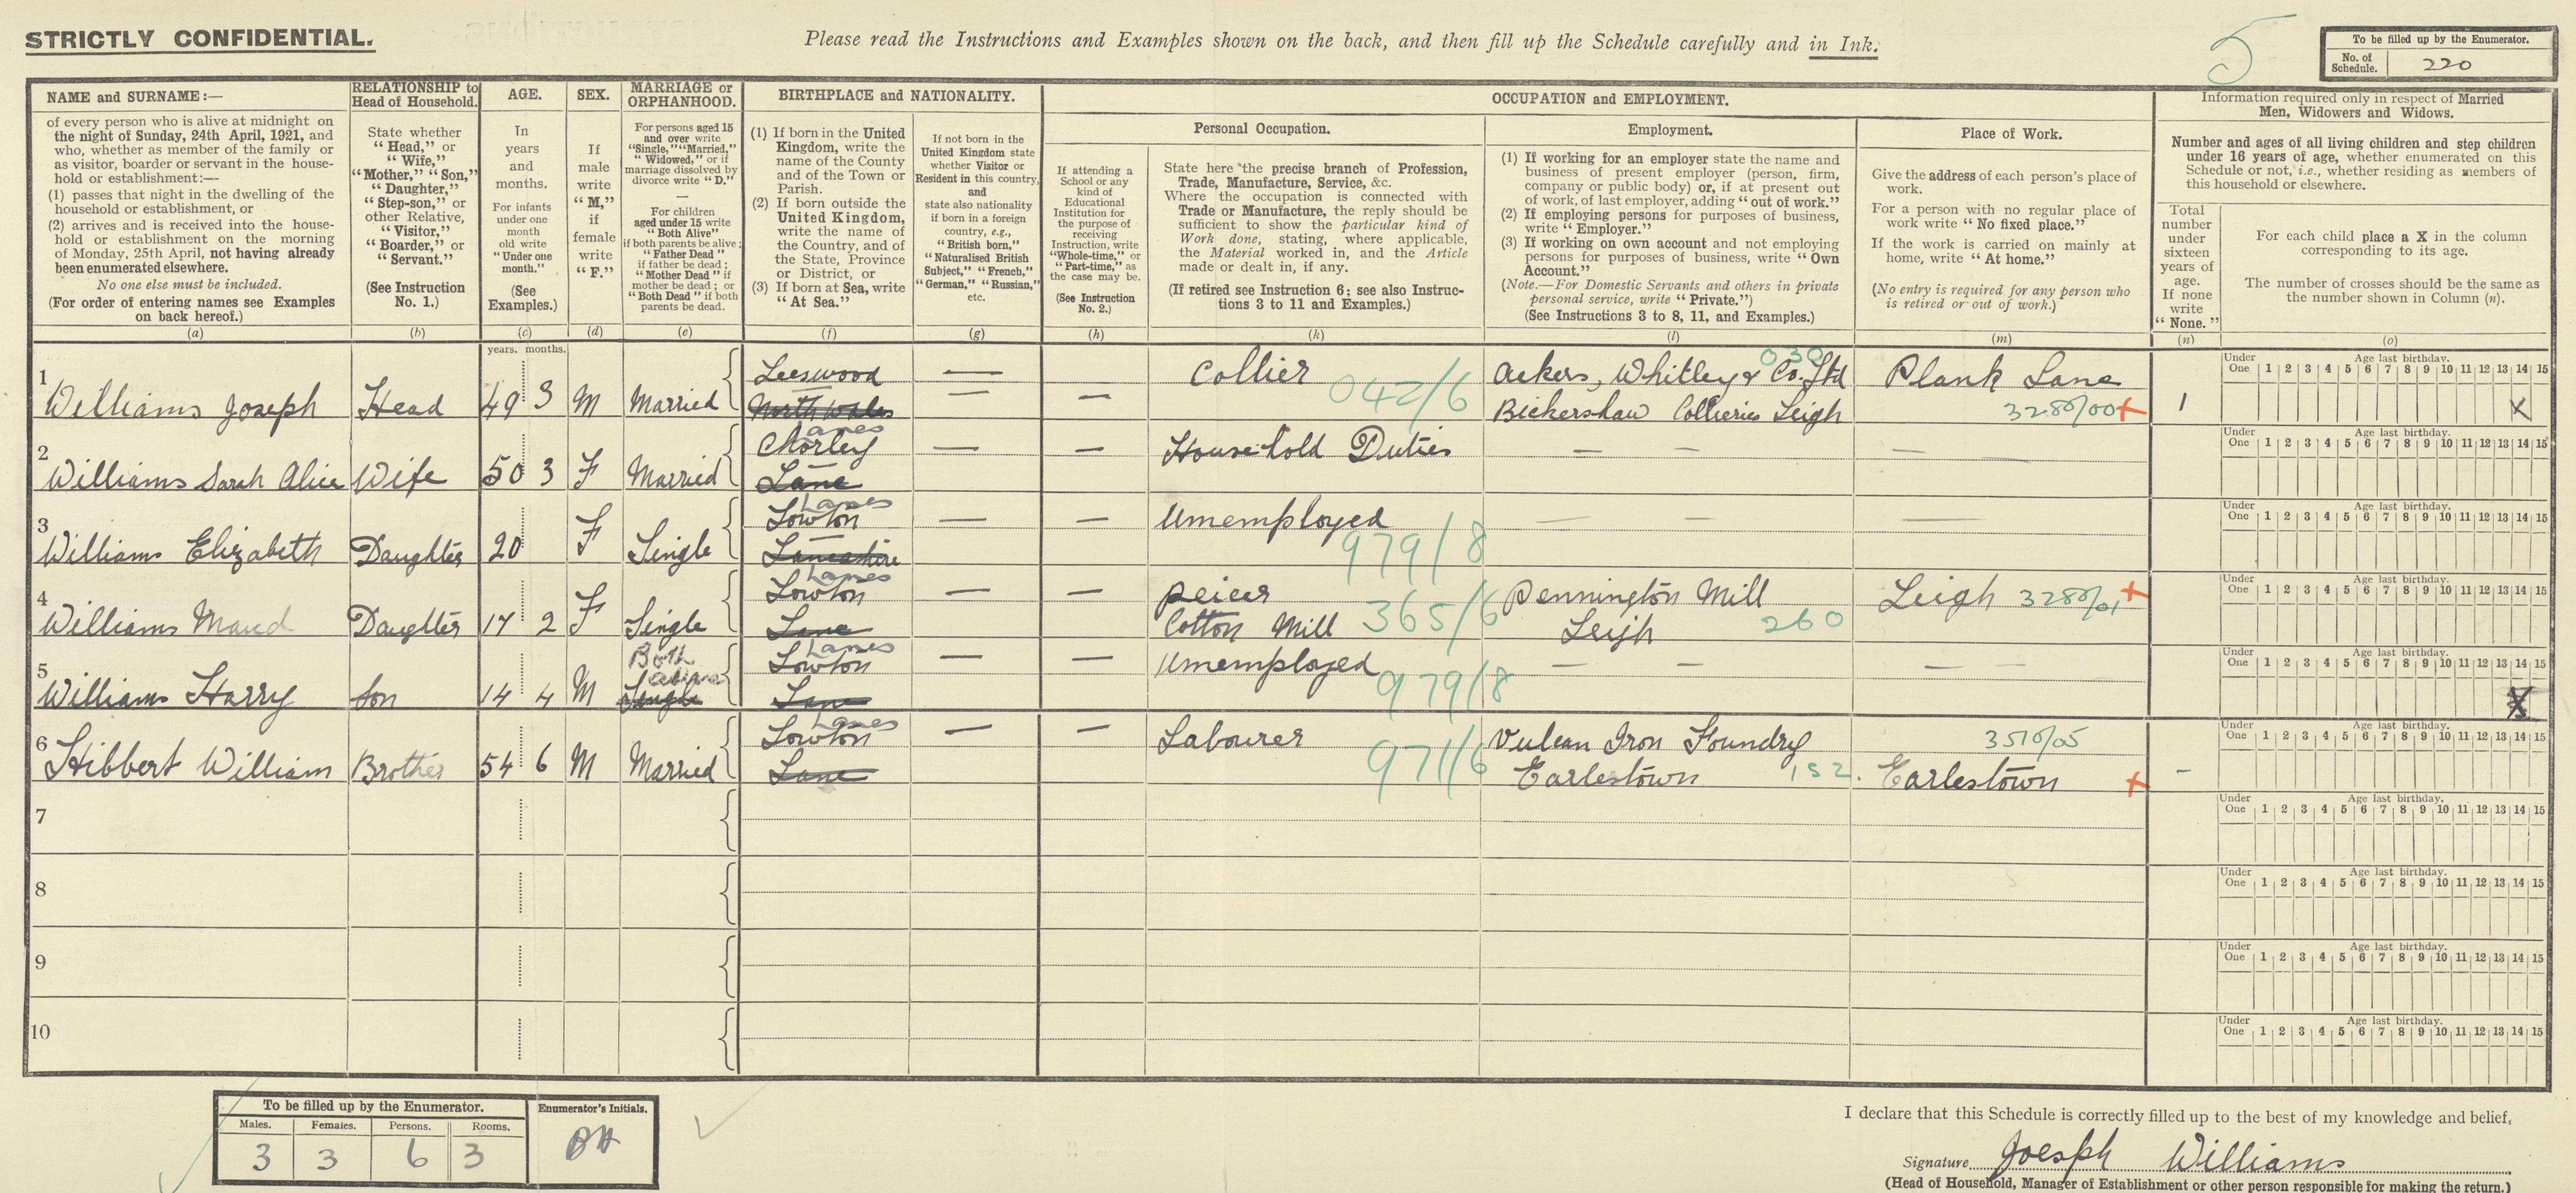 STRICTLY CONFIDENTIAL.
Please read the Instructions and Examples shown on the back, and then fill up the Schedule carefully and in Ink.
5
To be filled up by the Enumerator.
No. of Schedule. 220
NAME and SURNAME:—
of every person who is alive at midnight on
the night of Sunday, 24th April, 1921, and
who, whether as member of the family or
as visitor, boarder or servant in the house-
hold or establishment:—
(1) passes that night in the dwelling of the
household or establishment, or
(2) arrives and is received into the house-
hold or establishment on the morning
of Monday, 25th April, not having already
been enumerated elsewhere.
No one else must be included.
(For order of entering names see Examples
on back hereof.)
(a)
RELATIONSHIP to
Head of Household.
State whether
"Head," or
"Wife,"
"Mother," "Son,"
"Daughter,"
"Step-son," or
other Relative,
"Visitor,"
"Boarder," or
"Servant."
(See Instruction
No. 1.)
(b)
AGE.
In
years
and
months.
For infants
under one
month
old write
"Under one
month."
(See
Examples.)
(c)
SEX.
If
male
write
"M,"
if
female
write
"F."
(d)
MARRIAGE or
ORPHANHOOD.
For persons aged 15
and over write
"Single," "Married,"
"Widowed," or if
marriage dissolved by
divorce write "D."
—
For children
aged under 15 write
"Both Alive"
if both parents be alive;
"Father Dead"
if father be dead;
"Mother Dead" if
mother be dead; or
"Both Dead" if both
parents be dead.
(e)
BIRTHPLACE and NATIONALITY.
(1) If born in the United
Kingdom, write the
name of the County
and of the Town or
Parish.
(2) If born outside the
United Kingdom,
write the name of
the Country, and of
the State, Province
or District, or
(3) If born at Sea, write
"At Sea."
(f)
If not born in the
United Kingdom state
whether Visitor or
Resident in this country,
and
state also nationality
if born in a foreign
country, e.g.,
"British born,"
"Naturalised British
Subject," "French,"
"German," "Russian,"
etc.
(g)
OCCUPATION and EMPLOYMENT.
If attending a
School or any
kind of
Educational
Institution for
the purpose of
receiving
Instruction, write
"Whole-time," or
"Part-time," as
the case may be.
(See Instruction
No. 2.)
(h)
Personal Occupation.
State here the precise branch of Profession,
Trade, Manufacture, Service, &c.
Where the occupation is connected with
Trade or Manufacture, the reply should be
sufficient to show the particular kind of
Work done, stating, where applicable,
the Material worked in, and the Article
made or dealt in, if any.
(If retired see Instruction 6; see also Instruc-
tions 3 to 11 and Examples.)
(k)
Employment.
(1) If working for an employer state the name and
business of present employer (person, firm,
company or public body) or, if at present out
of work, of last employer, adding "out of work."
(2) If employing persons for purposes of business,
write "Employer."
(3) If working on own account and not employing
persons for purposes of business, write "Own
Account."
(Note.—For Domestic Servants and others in private
personal service, write "Private.")
(See Instructions 3 to 8, 11, and Examples.)
(l)
Place of Work.
Give the address of each person's place of
work.
For a person with no regular place of
work write "No fixed place."
If the work is carried on mainly at
home, write "At home."
(No entry is required for any person who
is retired or out of work.)
(m)
Information required only in respect of Married
Men, Widowers and Widows.
Number and ages of all living children and step children
under 16 years of age, whether enumerated on this
Schedule or not, i.e., whether residing as members of
this household or elsewhere.
Total
number
under
sixteen
years of
age.
If none
write
"None."
(n)
For each child place a X in the column
corresponding to its age.
The number of crosses should be the same as
the number shown in Column (n).
(o)
years. months.
1 Williams Joseph Head 49 3 M Married Leeswood North Wales — — — Collier 042/6 Ackers, Whitley & Co. Ltd 030 Bickershaw Collieries Leigh Plank Lane 3280/00 + 1
Under One 1 2 3 4 5 6 7 8 9 10 11 12 13 14 15 Age last birthday. X
2 Williams Sarah Alice Wife 50 3 F Married Lancs Chorley Lanc — — Household Duties — — —
Under One 1 2 3 4 5 6 7 8 9 10 11 12 13 14 15 Age last birthday.
3 Williams Elizabeth Daughter 20 F Single Lancs Lowton Lancashire — — Unemployed 979/8 — — —
Under One 1 2 3 4 5 6 7 8 9 10 11 12 13 14 15 Age last birthday.
4 Williams Maud Daughter 17 2 F Single Lancs Lowton Lanc — — Peicer Cotton Mill 365/6 Pennington Mill Leigh 260 Leigh 3280/01 +
Under One 1 2 3 4 5 6 7 8 9 10 11 12 13 14 15 Age last birthday.
5 Williams Harry Son 14 4 M Both alive Single Lancs Lowton Lanc — — Unemployed 979/8 — — — —
Under One 1 2 3 4 5 6 7 8 9 10 11 12 13 14 15 Age last birthday. X
6 Hibbert William Brother 54 6 M Married Lancs Lowton Lanc — — Labourer 971/6 Vulcan Iron Foundry Earlestown 152. 3510/05 Earlestown + -
Under One 1 2 3 4 5 6 7 8 9 10 11 12 13 14 15 Age last birthday.
7
Under One 1 2 3 4 5 6 7 8 9 10 11 12 13 14 15 Age last birthday.
8
Under One 1 2 3 4 5 6 7 8 9 10 11 12 13 14 15 Age last birthday.
9
Under One 1 2 3 4 5 6 7 8 9 10 11 12 13 14 15 Age last birthday.
10
Under One 1 2 3 4 5 6 7 8 9 10 11 12 13 14 15 Age last birthday.
To be filled up by the Enumerator.
Males. Females. Persons. Rooms.
3 3 6 3
Enumerator's Initials.
BH
I declare that this Schedule is correctly filled up to the best of my knowledge and belief,
Signature Joesph Williams
(Head of Household, Manager of Establishment or other person responsible for making the return.)